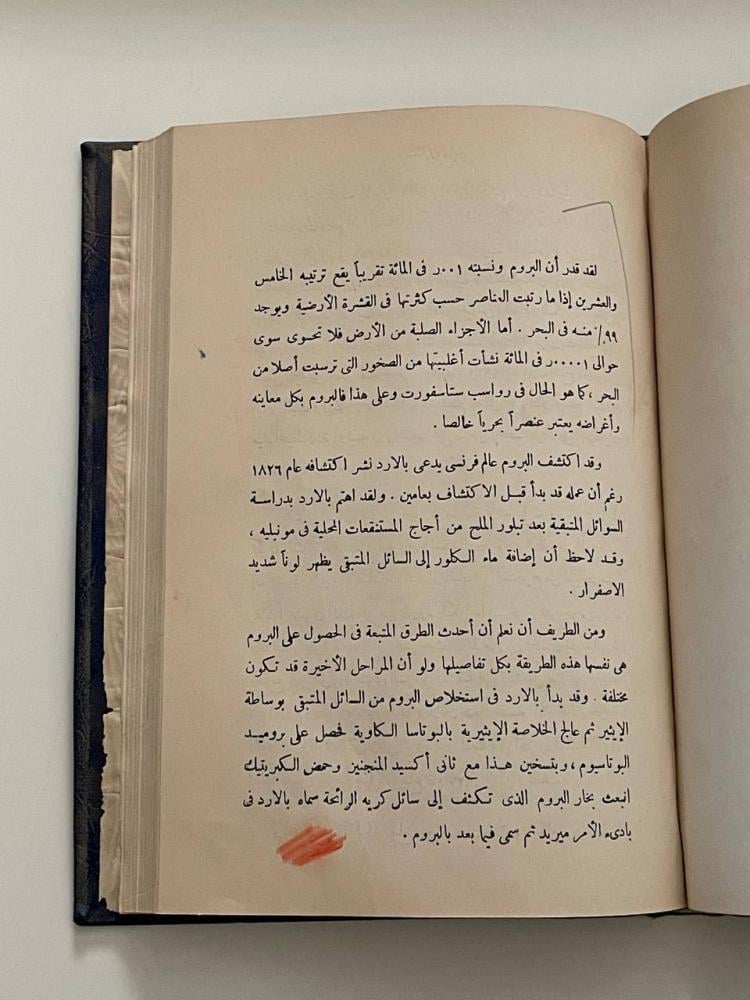 لقد قدر أن البروم ونسبته ٠٠١ر فى المائة تقريباً يقع ترتيبه الخامس
والعشرين إذا ما رتبت العناصر حسب كثرتها فى القشرة الأرضية ويوجد
٩٩٪ منه فى البحر . أما الأجزاء الصلبة من الأرض فلا تحوى سوى
حوالى ٠٠٠٠١ر فى المائة نشأت أغلبيتها من الصخور التى ترسبت أصلا من
البحر ، كما هو الحال فى رواسب ستاسفورت وعلى هذا فالبروم بكل معاينه
وأغراضه يعتبر عنصراً بحرياً خالصا .
وقد اكتشف البروم عالم فرنسى يدعى بالارد نشر اكتشافه عام ١٨٢٦
رغم أن عمله قد بدأ قبل الاكتشاف بعامين . ولقد اهتم بالارد بدراسة
السوائل المتبقية بعد تبلور الملح من أجاج المستنقعات المحلية فى مونبليه ،
وقد لاحظ أن إضافة ماء الكلور إلى السائل المتبقى يظهر لوناً شديد
الاصفرار .
ومن الطريف أن نعلم أن أحدث الطرق المتبعة فى الحصول على البروم
هى نفسها هذه الطريقة بكل تفاصيلها ولو أن المراحل الأخيرة قد تكون
مختلفة . وقد بدأ بالارد فى استخلاص البروم من السائل المتبقى بوساطة
الإيثير ثم عالج الخلاصة الإيثيرية بالبوتاسا الكاوية فحصل على بروميد
البوتاسيوم ، وبتسخين هذا مع ثانى أكسيد المنجنيز وحمض الكبريتيك
انبعث بخار البروم الذى تكثف إلى سائل كريه الرائحة سماه بالارد فى
بادىء الأمر ميريد ثم سمى فيما بعد بالبروم .